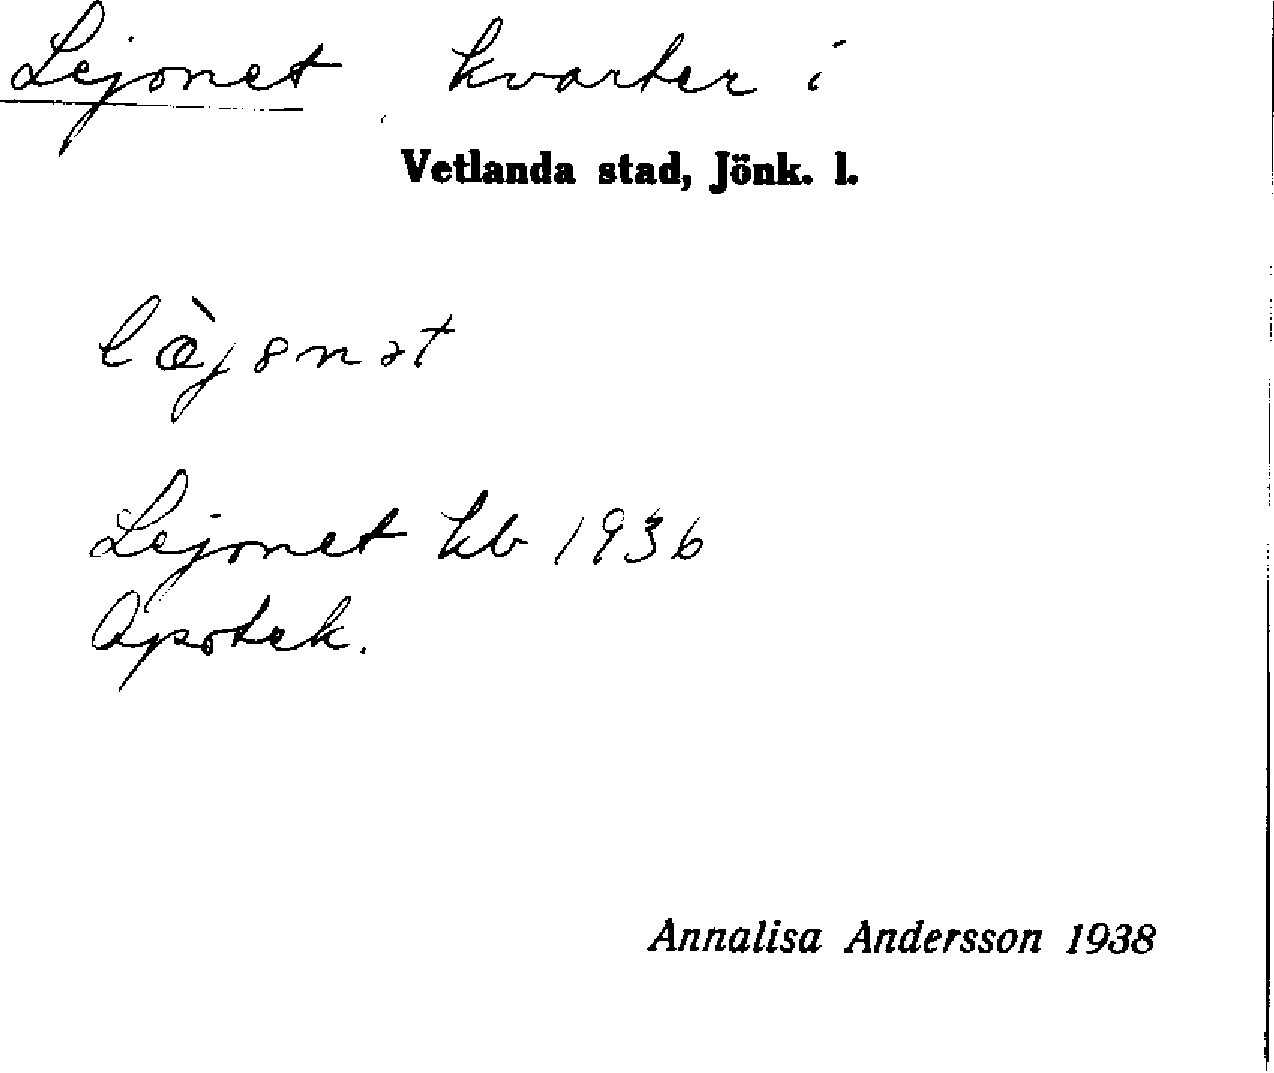 Lejonet kvarter i
Vetlanda stad, Jönk. l.
Lejonet kb 1936
Apotek.
Annalisa Andersson 1938